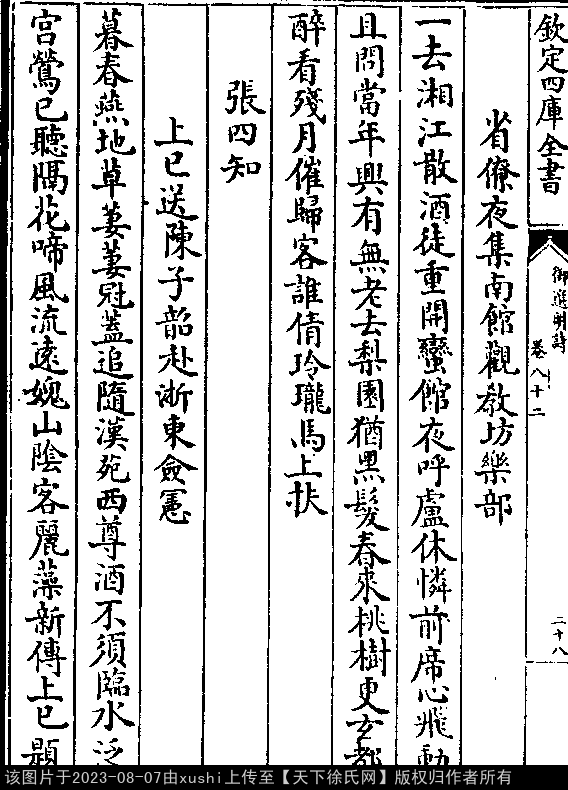 欽定四庫全書
御選明詩
卷八十二
二十八
省僚夜集南館觀教坊樂部
一去湘江散酒徒重開蠻館夜呼盧休憐前席心飛動
且問當年興有無老去梨園猶黑髮春來桃樹更玄都
醉看殘月催歸客誰倩玲瓏馬上扶
張四知
上巳送陳子韶赴浙東僉憲
暮春燕地草萋萋冠蓋追隨漢苑西尊酒不須臨水泛
宮鶯已聽隔花啼風流遠媿山陰客麗藻新傳上巳題
该图片于2023-08-07由xushi上传至【天下徐氏网】版权归作者所有